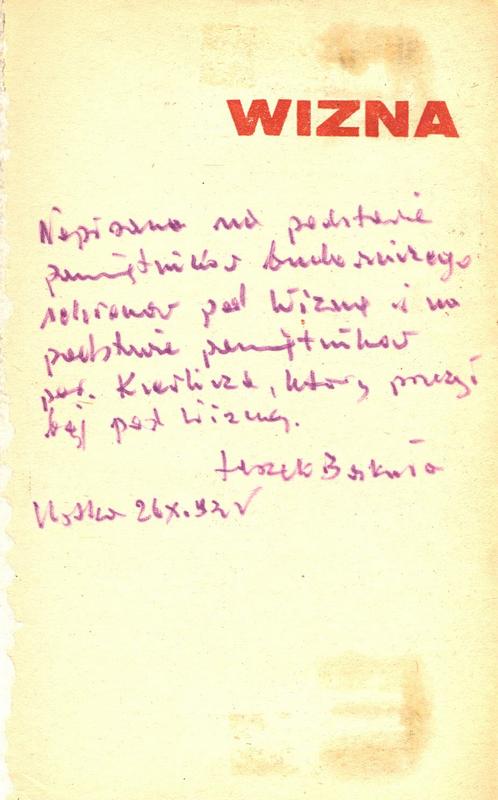 WIZNA
Napisana na podstawie
pamiętników budowniczego
schronów pod Wizną i na
podstawie pamiętników
por. Kieślicza, który przeżył
bój pod Wizną.
Leszek
26 X. 92 r